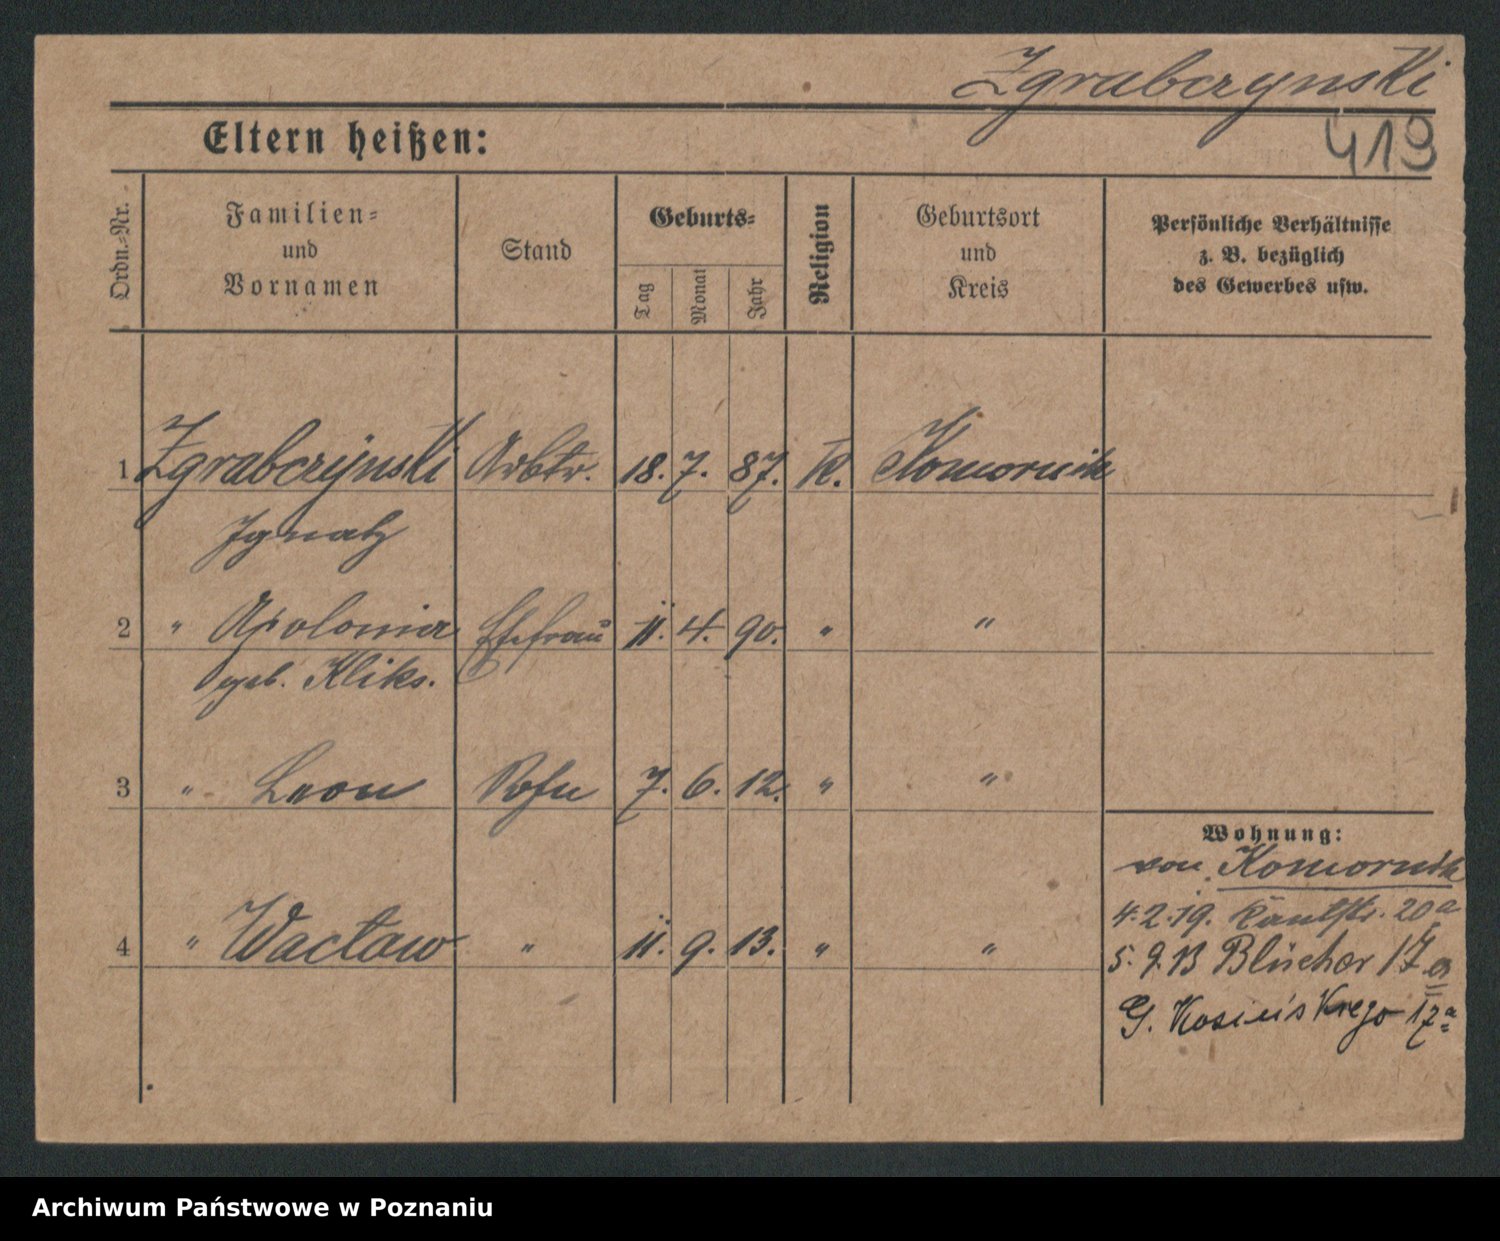 Zgrabczynski
419
Eltern heißen:
Ordn.-Nr.
Familien-
und
Vornamen
Stand
Geburts-
Tag
Monat
Jahr
Religion
Geburtsort
und
Kreis
Persönliche Verhältnisse
z. B. bezüglich
des Gewerbes usw.
1 Zgrabczynski Arbtr. 18. 7. 87. K. Komornik
Ignatz
2 " Apolonia Ehefrau 11. 4. 90. " "
geb. Kliks.
3 " Leon Sohn 7. 6. 12. " "
Wohnung:
von Komornik
4.2.19. 20a
4 " Wacław " 11. 9. 13. " "
Blücher 17
G. Kosińskiego 17a
Archiwum Państwowe w Poznaniu